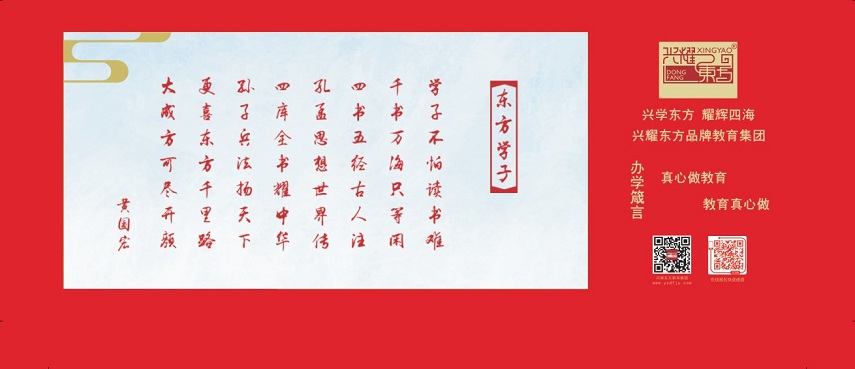 东方学子
学子不怕读书难
千书万海只等闲
四书五经古人注
孔孟思想世界传
四库全书耀中华
孙子兵法扬天下
更喜东方千里路
大成方可尽开颜
黄国宏
兴耀 XINGYAO®
DONG FANG 东方
兴学东方 耀辉四海
兴耀东方品牌教育集团
办学箴言
真心做教育
教育真心做
兴耀东方教育集团